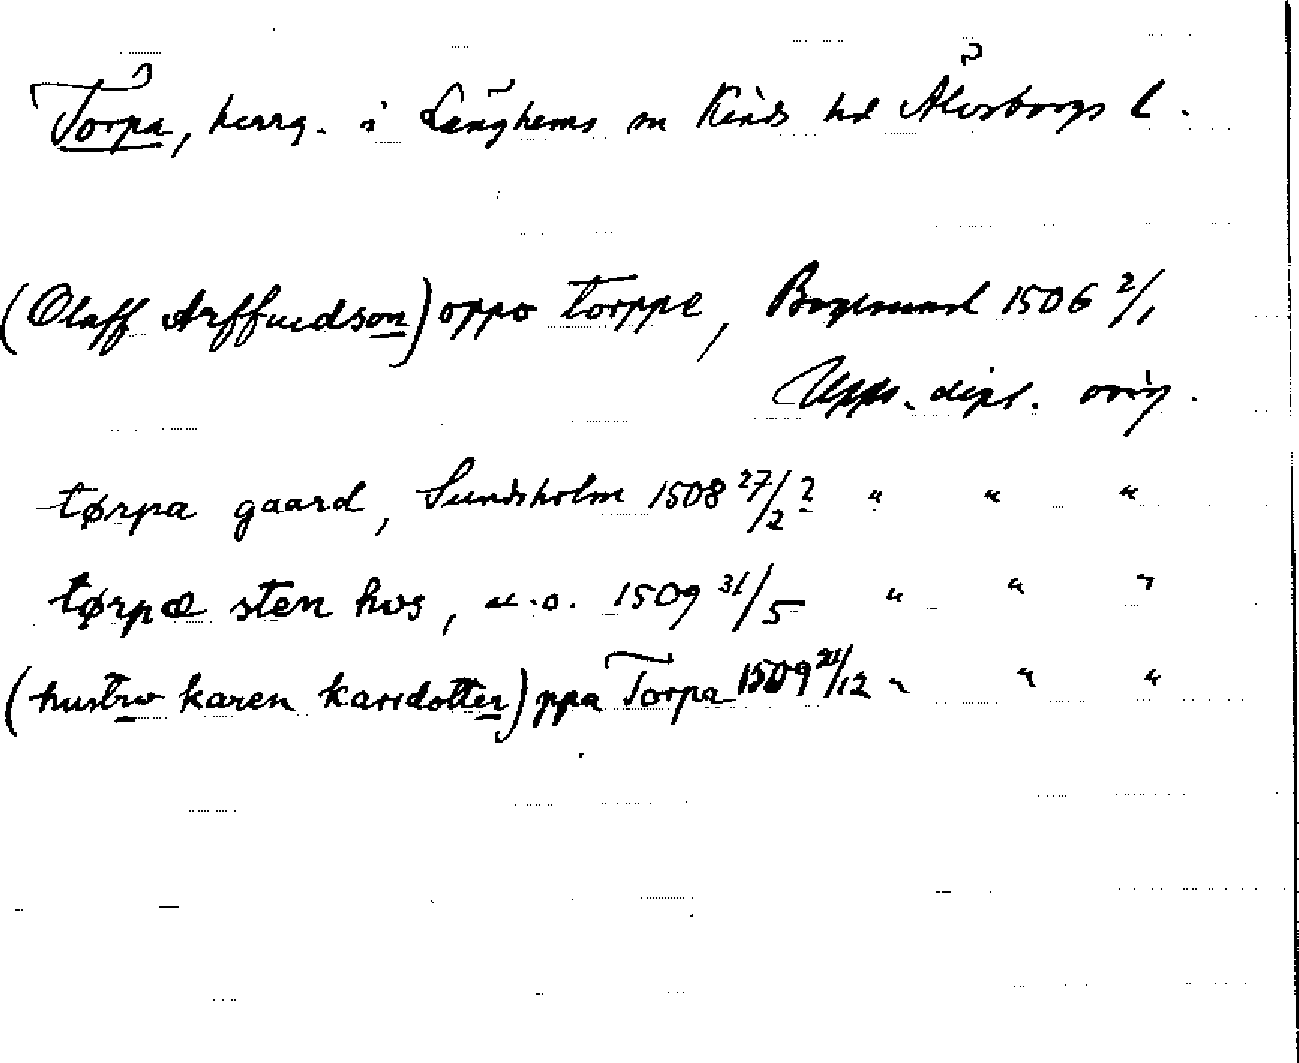 Torpa, herrg. i Länghems sn Kinds hd Älvsborgs l.
(Olaff Arffuedson) oppo torppe, Bogesund 1506 2/1
Upps. dipl. orig.
tørpa gaard, Sundsholm 1508 27/2 ? " " "
tørpæ sten hvs, u.o. 1509 31/5 " " "
(hustrv karen karisdotter) ppa Torpa 1509 21/12 " " "